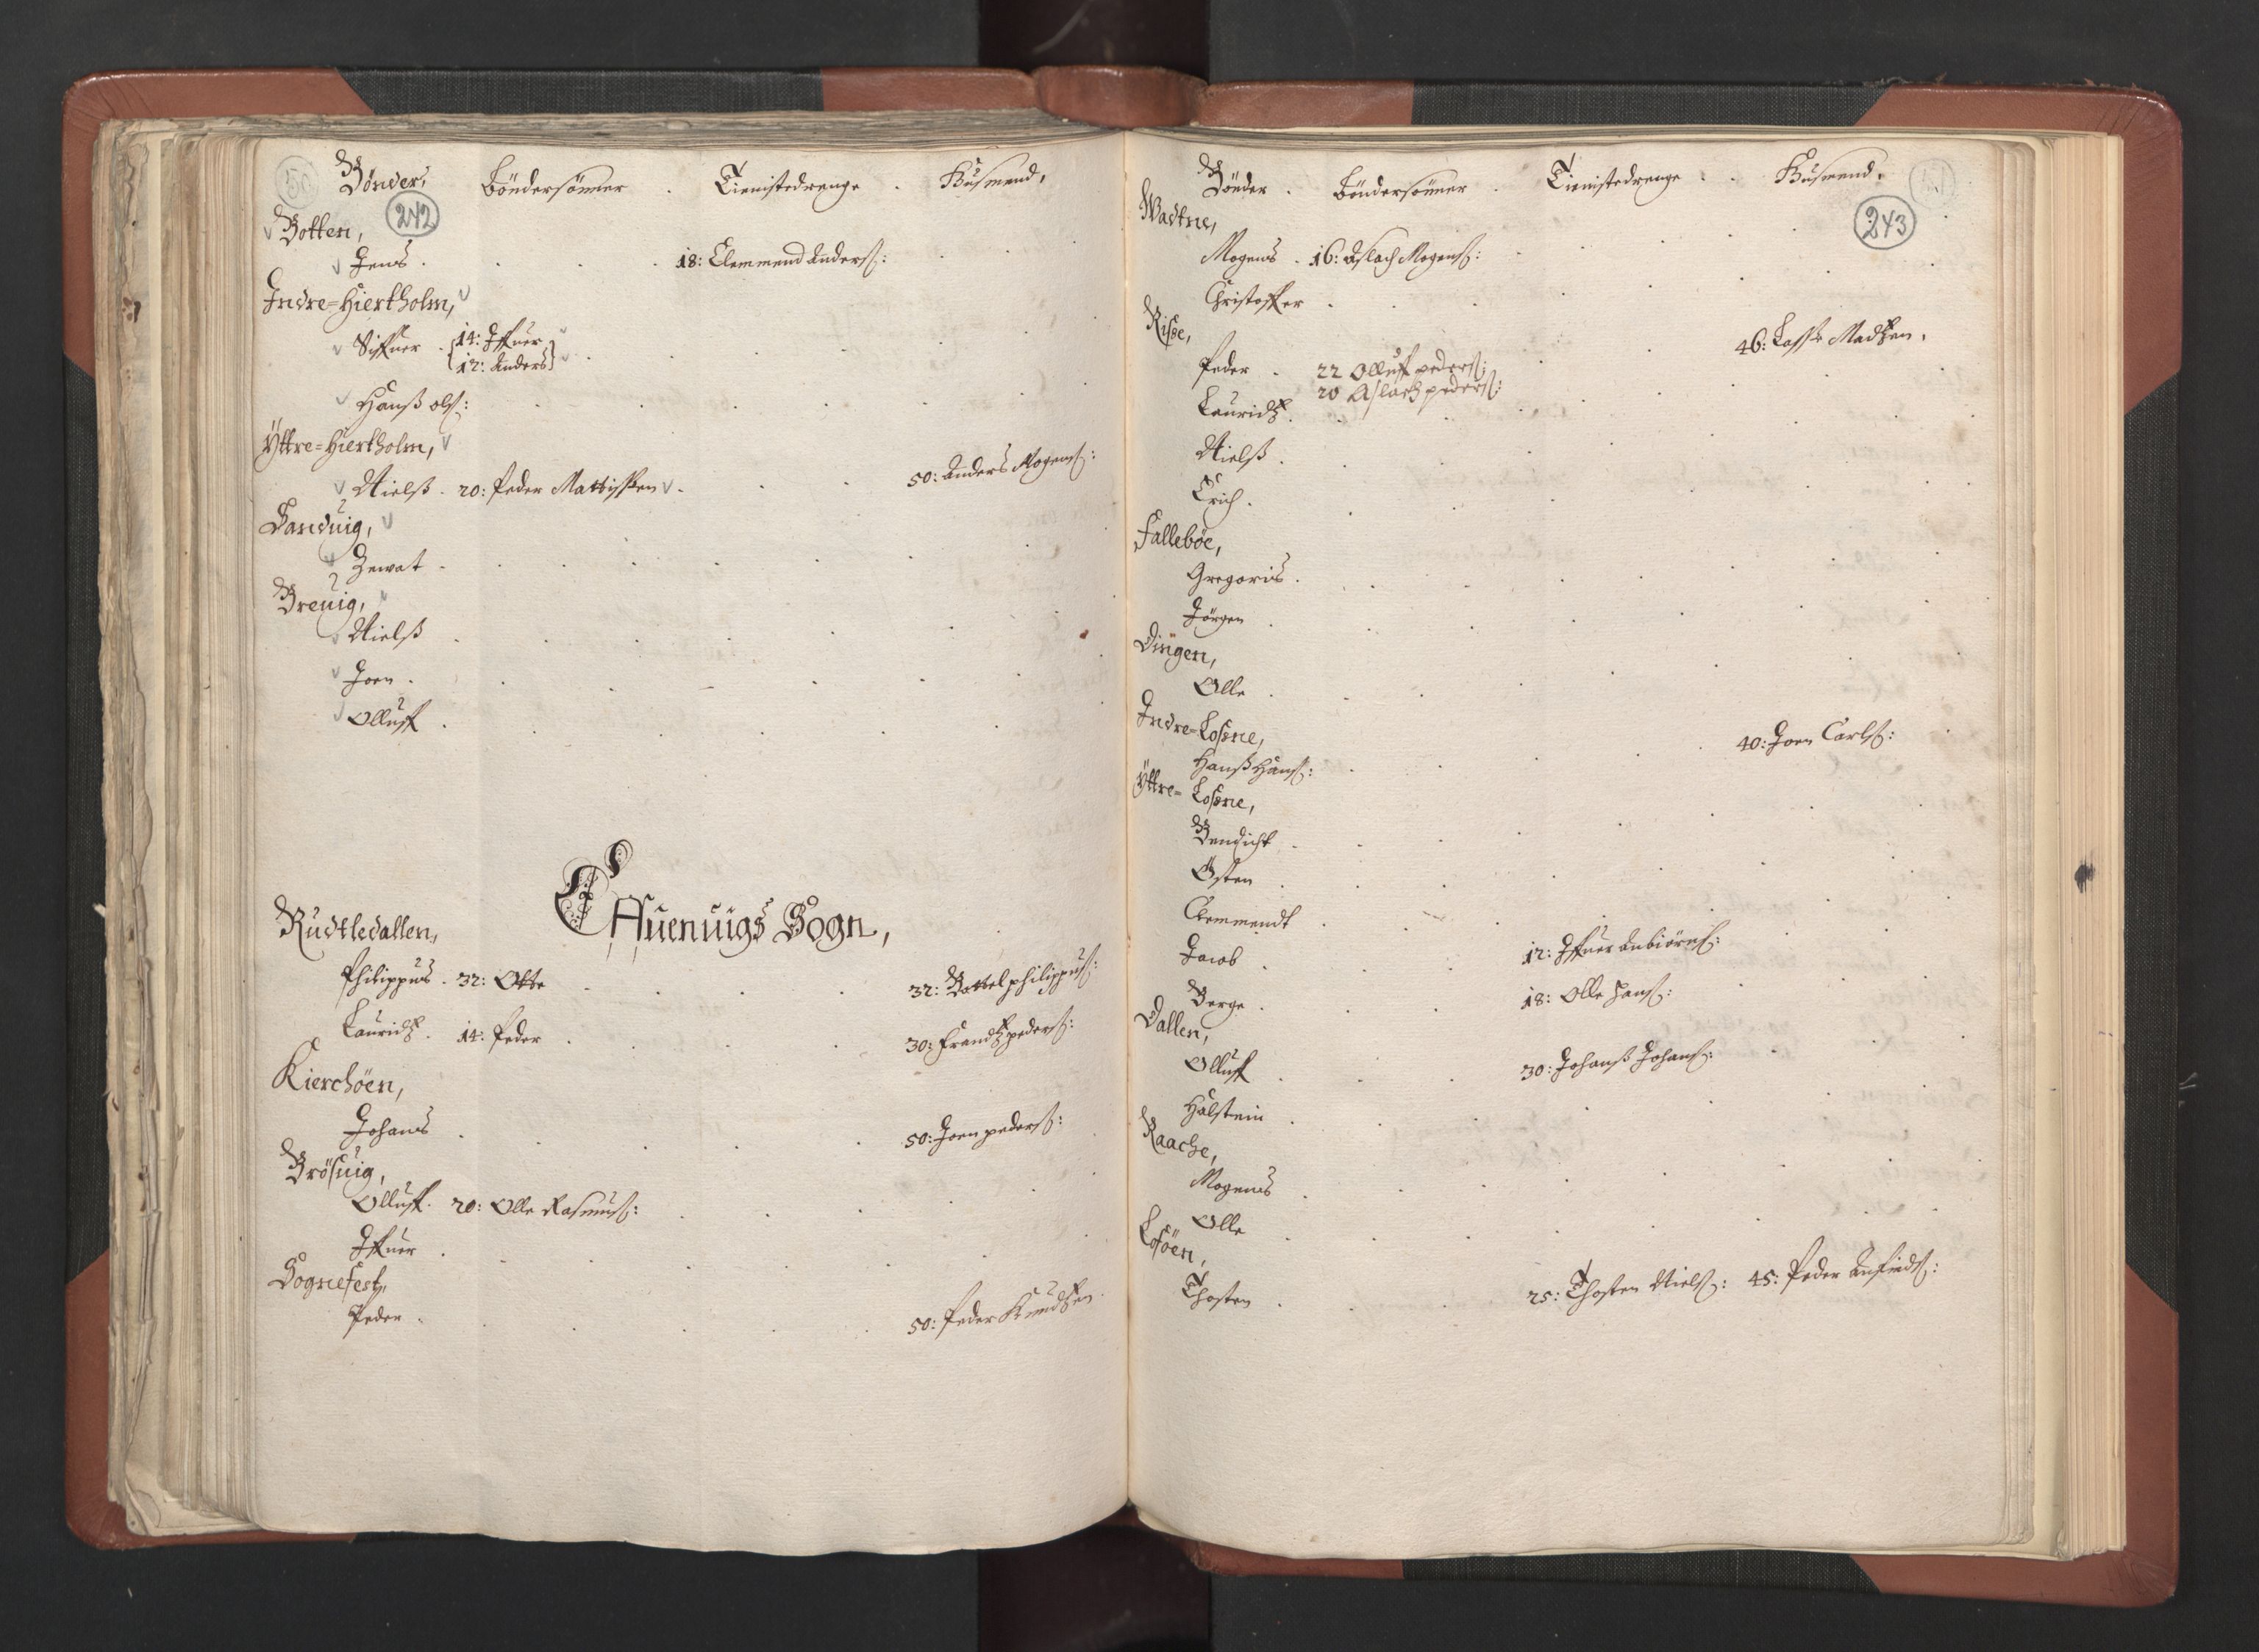 Bönder, Böndersönner . Tienistedrenge . Huusmend,
242
Botten,
Jens . 18: Clemmend Anderss:
Indre=Hiertholm,
Siffuer . 14: Iffuer
12: Anders
Hanss ols:
Yttre=Hiertholm,
Nielss . 20: Peder Mattissen . 50: Anders Mogenss:
Sanduig,
Zewat .
Breuig,
Nielss .
Joen .
Olluff .
Effuenuigs Sogn,
Rudtledallen,
Philippus . 32: Otte . 32: Bottel philippuss:
Lauridtz . 14: Peder . 30: Frandtz pederss:
Kierchöen,
Johans . 50: Joen pederss:
Brösuig,
Olluff . 20: Olle Rasmuss:
Iffuer .
Sognefest,
Peder . 50: Peder Knudtzen
Bönder . Böndersönner . Tienistedrenge . . Huusmend,
243
Wadtne,
Mogens . 16: Aslach Mogenss:
Christoffer .
Rise,
Peder . 22 Olluff peders: 46: Lasse Madtzen,
20 Aslach peders:
Lauridtz .
Nielss .
Erich .
Falleböe,
Gregorius .
Jörgen .
Dingen,
Olle .
Indre=Losne,
Hanss Hanss: 40: Joen Carlss:
Yttre=Losne,
Bendicht .
Östen .
Clemmendt .
Jacob . 12: Iffuer Anbiörns:
Berge . 18: Olle Hanss:
Dallen,
Olluff . 30: Johanss Johanss:
Halstein .
Raache,
Mogens .
Olle .
Losöen,
Thosten . 25: Thosten Nielss: 45: Peder Anfindss: